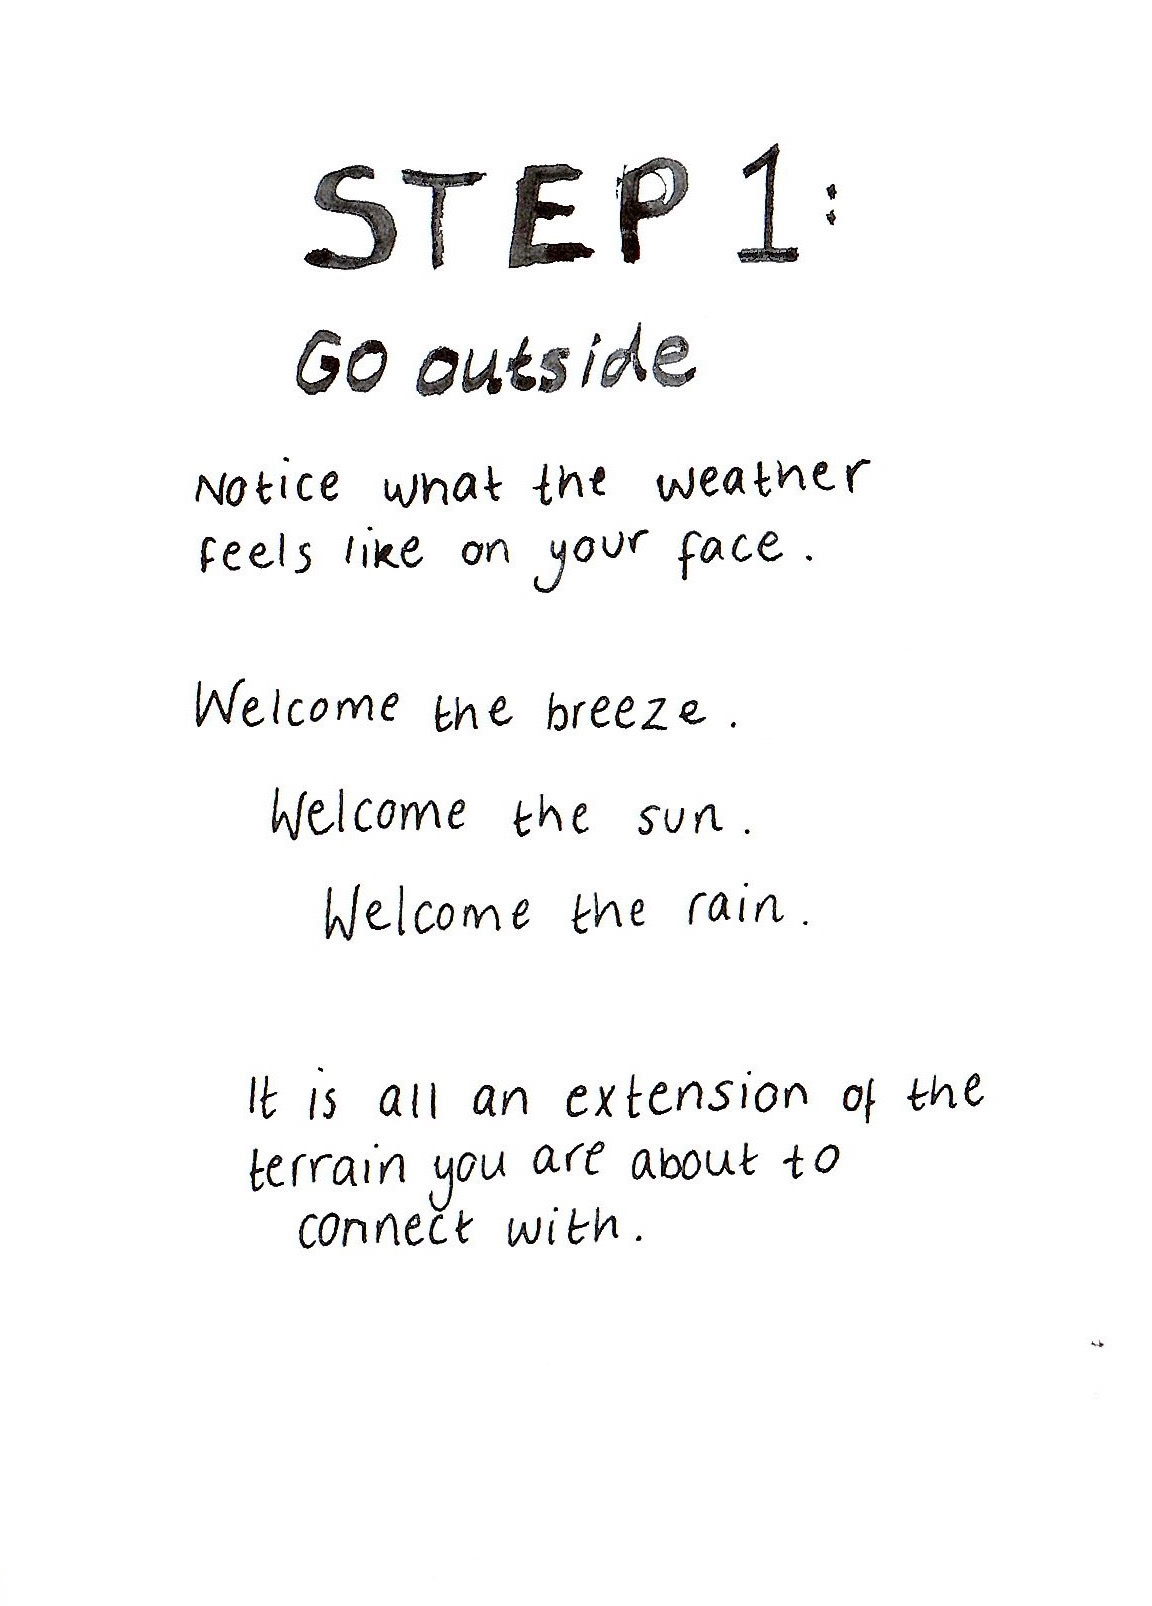 STEP 1:
Go outside
Notice what the weather
feels like on your face.
Welcome the breeze.
Welcome the sun.
Welcome the rain.
It is all an extension of the
terrain you are about to
connect with.